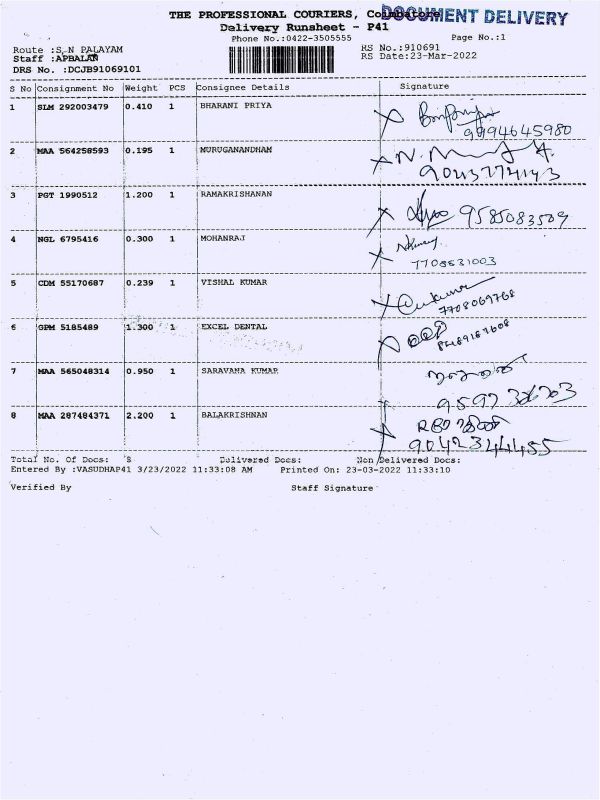 THE PROFESSIONAL COURIERS, Coimbatore
DOCUMENT DELIVERY
Delivery Runsheet - P41
Phone No.:0422-3505555 Page No.:1
Route :S.N PALAYAM RS No.:910691
Staff :APBALAN RS Date:23-Mar-2022
DRS No. :DCJB91069101
S No Consignment No Weight PCS Consignee Details Signature
1 SLM 292003479 0.410 1 BHARANI PRIYA
9994645980
2 MAA 564258593 0.195 1 MURUGANANDHAM
3 PGT 1990512 1.200 1 RAMAKRISHANAN
9585083509
4 NGL 6795416 0.300 1 MOHANRAJ
7708531003
5 CDM 55170687 0.239 1 VISHAL KUMAR
7708069768
6 GPM 5185489 1.300 1 EXCEL DENTAL
7 MAA 565048314 0.950 1 SARAVANA KUMAR
8 MAA 287484371 2.200 1 BALAKRISHNAN
Total No. Of Docs: 8 Delivered Docs: Non Delivered Docs:
Entered By :VASUDHAP41 3/23/2022 11:33:08 AM Printed On: 23-03-2022 11:33:10
Verified By Staff Signature